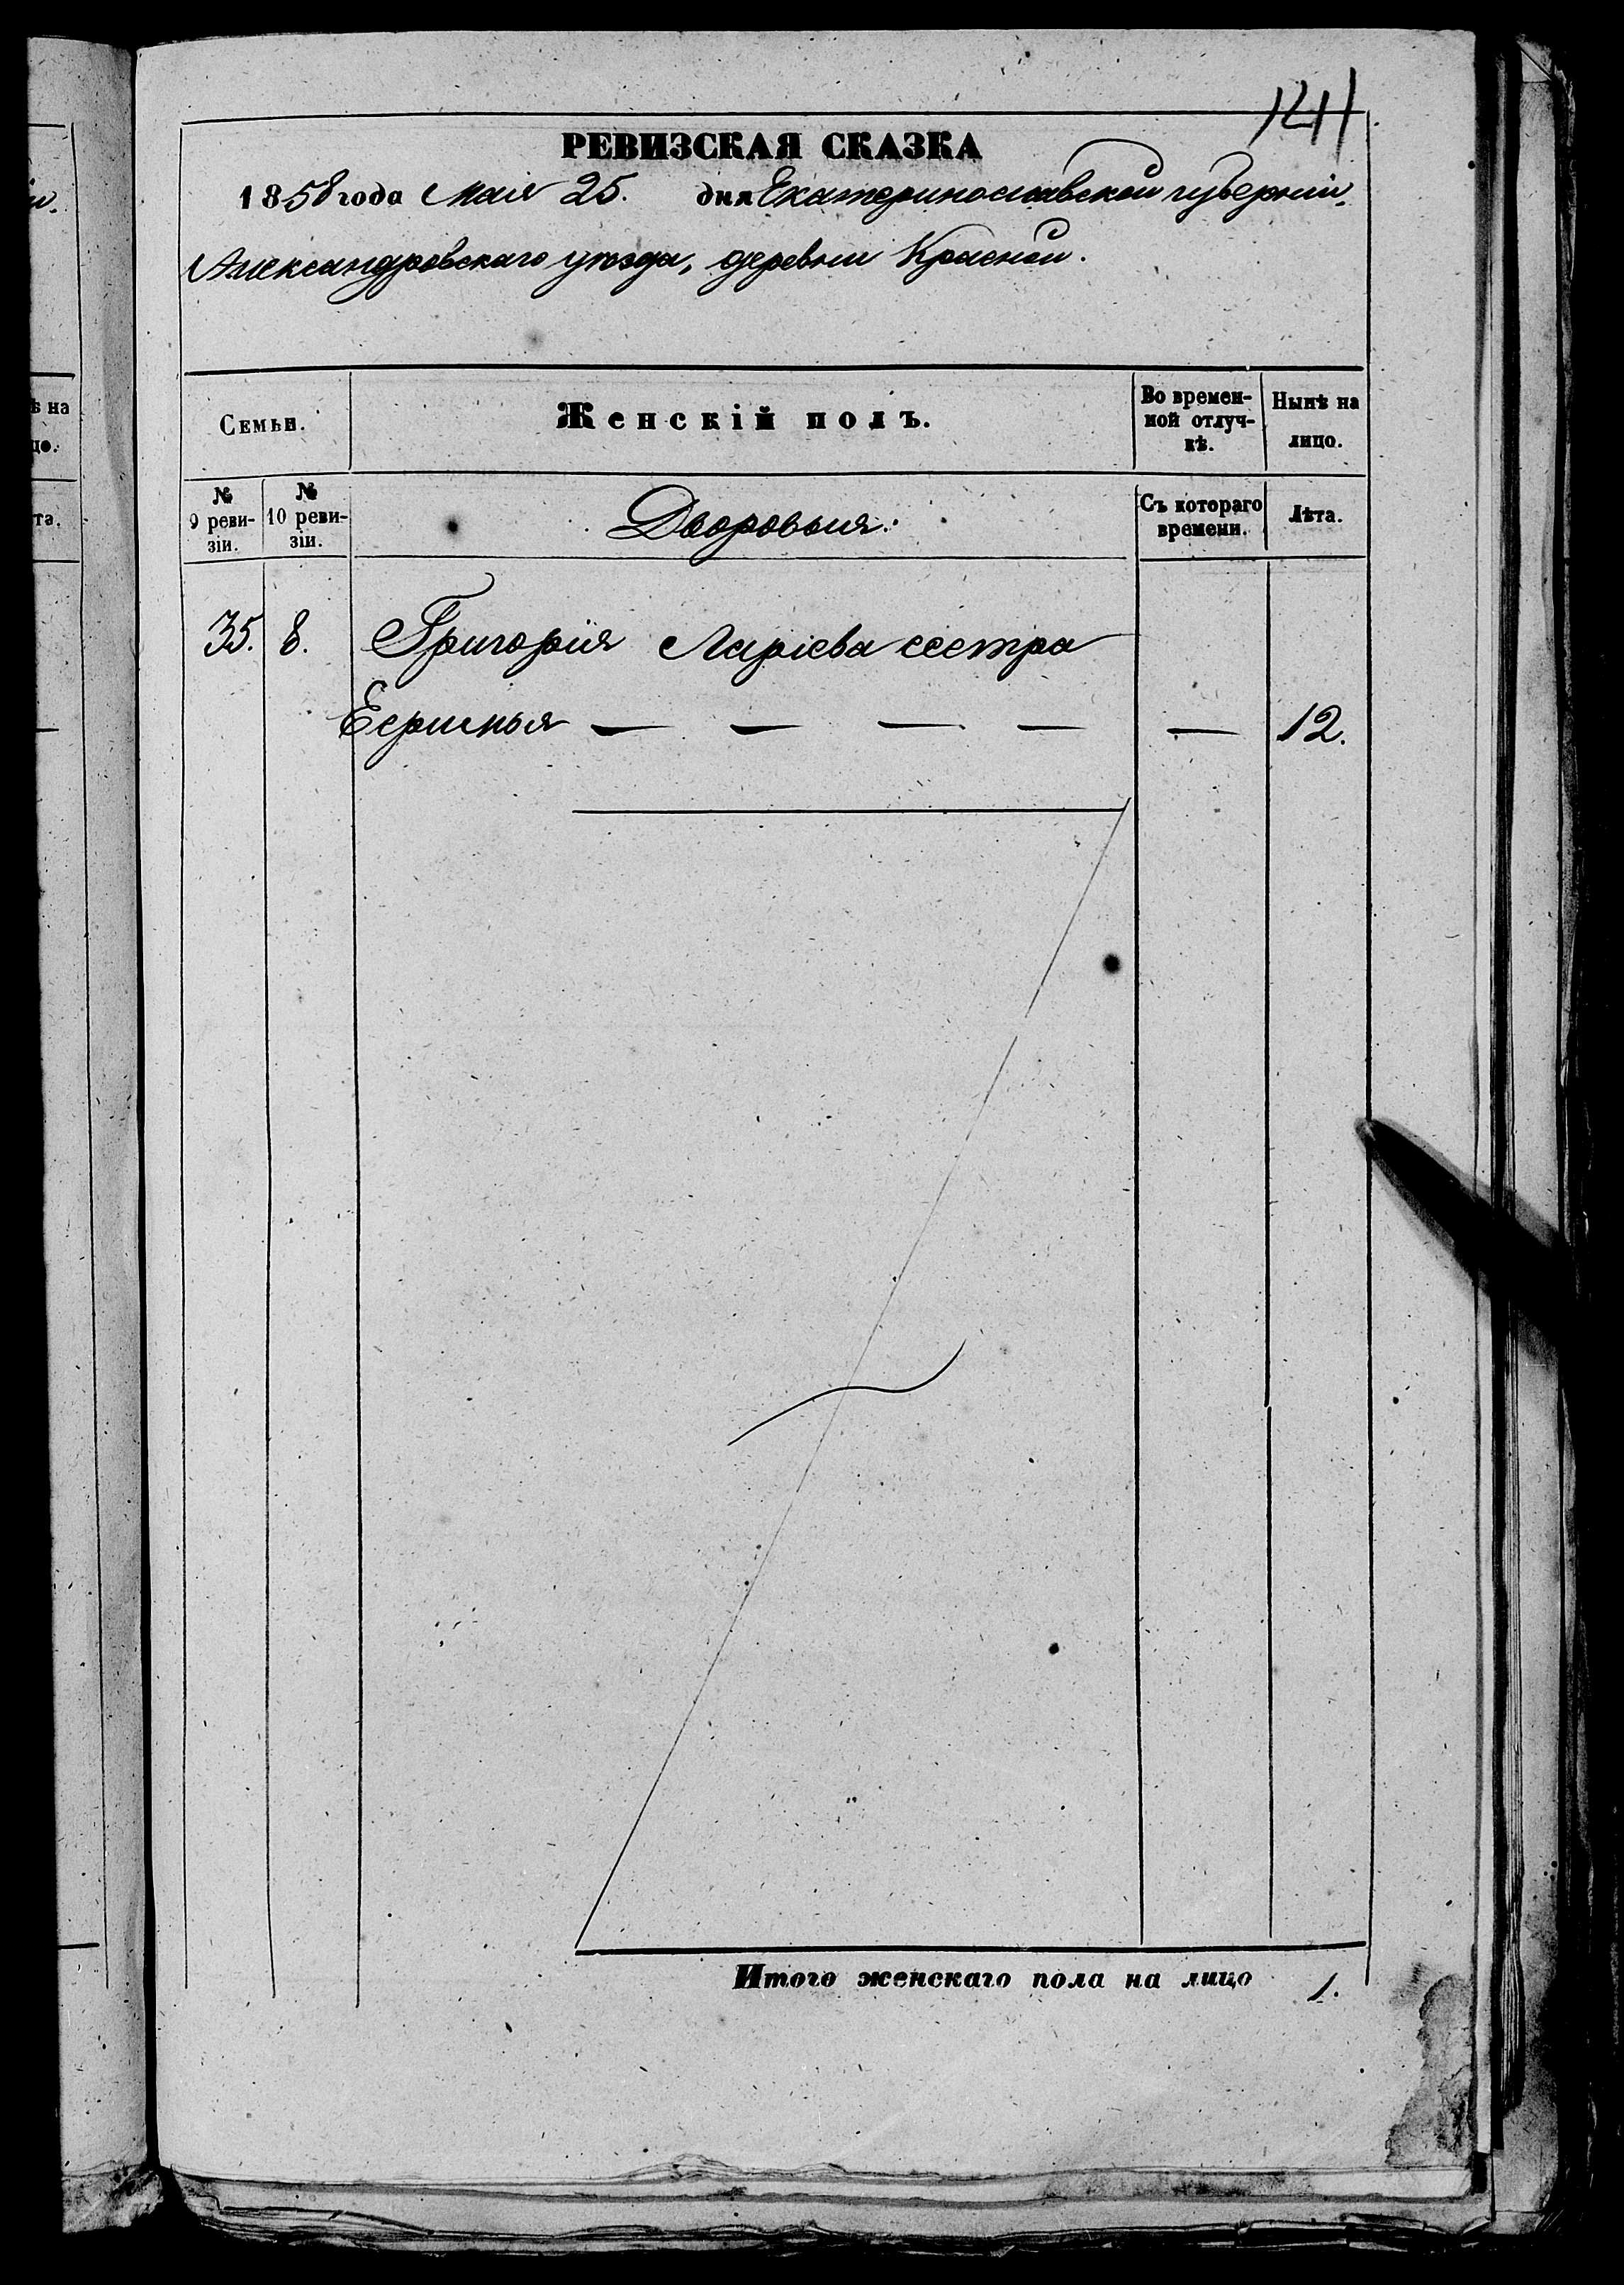 141
РЕВИЗСКАЯ СКАЗКА
1858 года Маія 25. дня Екатеринославской губерніи,
Александровскаго уѣзда, деревни Красной.
Семьи.
Женскій полъ.
Во времен-
ной отлуч-
кѣ.
Нынѣ на
лицо.
№
9 реви-
зіи.
№
10 реви-
зіи.
Дворовыя:
Съ котораго
времени.
Лѣта.
35. 8. Григорія сестра
— — — — — 12.
Итого женскаго пола на лицо 1.
ѣ на
цо.
та.